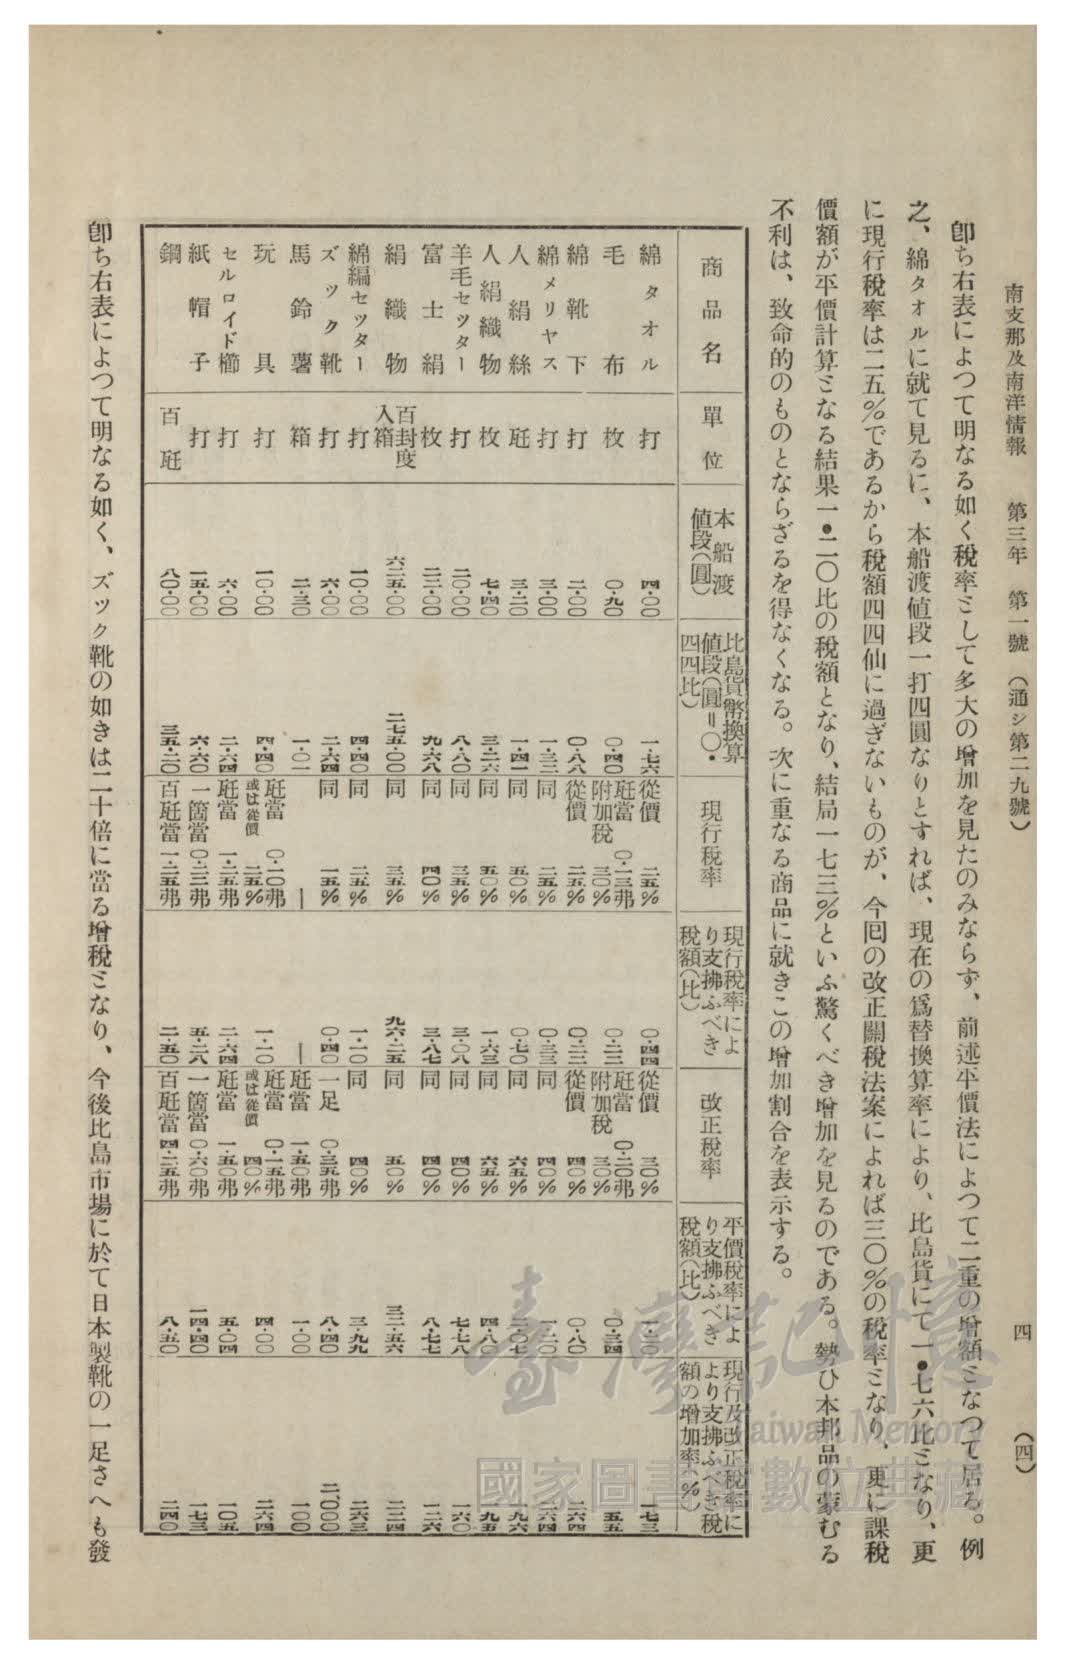 南支那及南洋情報　第三年　第一號　(通シ第二九號)　四　(四)
卽ち右表によつて明なる如く税率として多大の増加を見たのみならず、前述平價法によつて二重の増額となつて居る。例
之、綿タオルに就て見るに、本船渡値段一打四圓なりとすれば、現在の爲替換算率により、比島貨にて一•七六比となり、更
に現行税率は二五%であるから税額四四仙に過ぎないものが、今囘の改正關税法案によれば三〇%の税率となり、更に課税
價額が平價計算となる結果一•二〇比の税額となり、結局一七三%といふ驚くべき増加を見るのである。勢ひ本邦品の蒙むる
不利は、致命的のものとならざるを得なくなる。次に重なる商品に就きこの増加割合を表示する。
商品名　單位　本船渡値段(圓)　比島貨幣換算値段(圓=〇・四四比)　現行税率　現行税率により支拂ふべき税額(比)　改正税率　平價税率により支拂ふべき税額(比)　現行及改正税率により支拂ふべき税額の増加率(%)
綿タオル　打　四・〇〇　一・七六　從價　二五%　〇・四四　從價　三〇%　一・二〇　一七三
毛布　枚　〇・九〇　〇・四〇　瓩當　〇・一三弗　附加税　三〇%　〇・二二　瓩當　〇・二〇弗　附加税　三〇%　〇・三四　五五
綿靴下　打　二・〇〇　〇・八八　從價　二五%　〇・二二　從價　四〇%　〇・八〇　二六四
綿メリヤス　打　三・〇〇　一・三二　同　二五%　〇・三三　同　四〇%　一・二〇　二六四
人絹絲　瓩　三・二〇　一・四一　同　五〇%　〇・七〇　同　六五%　二・〇七　一九六
人絹織物　枚　七・四〇　三・二六　同　五〇%　一・六三　同　六五%　四・八〇　一九五
羊毛セッター　打　二〇・〇〇　八・八〇　同　三五%　三・〇八　同　四〇%　七・七八　一六〇
富士絹　枚　二二・〇〇　九・六八　同　四〇%　三・八七　同　四〇%　八・七七　一二六
絹織物　百封度入箱　六二五・〇〇　二七五・〇〇　同　三五%　九六・二五　同　五〇%　三一・五六　二二四
綿編セッター　打　一〇・〇〇　四・四〇　同　二五%　一・一〇　同　四〇%　三・九九　二六三
ズック靴　打　六・〇〇　二・六四　同　一五%　〇・四〇　一足　〇・三五弗　八・四〇　二、〇〇〇
馬鈴薯　箱　二・三〇　一・〇一　—　—　瓩當　一・五〇弗　一・〇〇　一〇〇
玩具　打　一〇・〇〇　四・四〇　瓩當　〇・一〇弗　或は從價　二五%　一・一〇　瓩當　〇・一五弗　或は從價　四〇%　四・〇〇　二六四
セルロイド櫛　打　六・〇〇　二・六四　瓩當　一・二五弗　二・六四　瓩當　一・五〇弗　五・〇四　一〇五
紙帽子　打　一五・〇〇　六・六〇　一箇當　〇・二二弗　五・二八　一箇當　〇・六〇弗　一四・四〇　一七三
鋼　百瓩　八〇・〇〇　三五・二〇　百瓩當　一・二五弗　二・五〇　百瓩當　四・二五弗　八・五〇　二四〇
卽ち右表によつて明なる如く、ズック靴の如きは二十倍に當る增税となり、今後比島市場に於て日本製靴の一足さへも發
臺灣記憶
Taiwan Memory
國家圖書館數位典藏